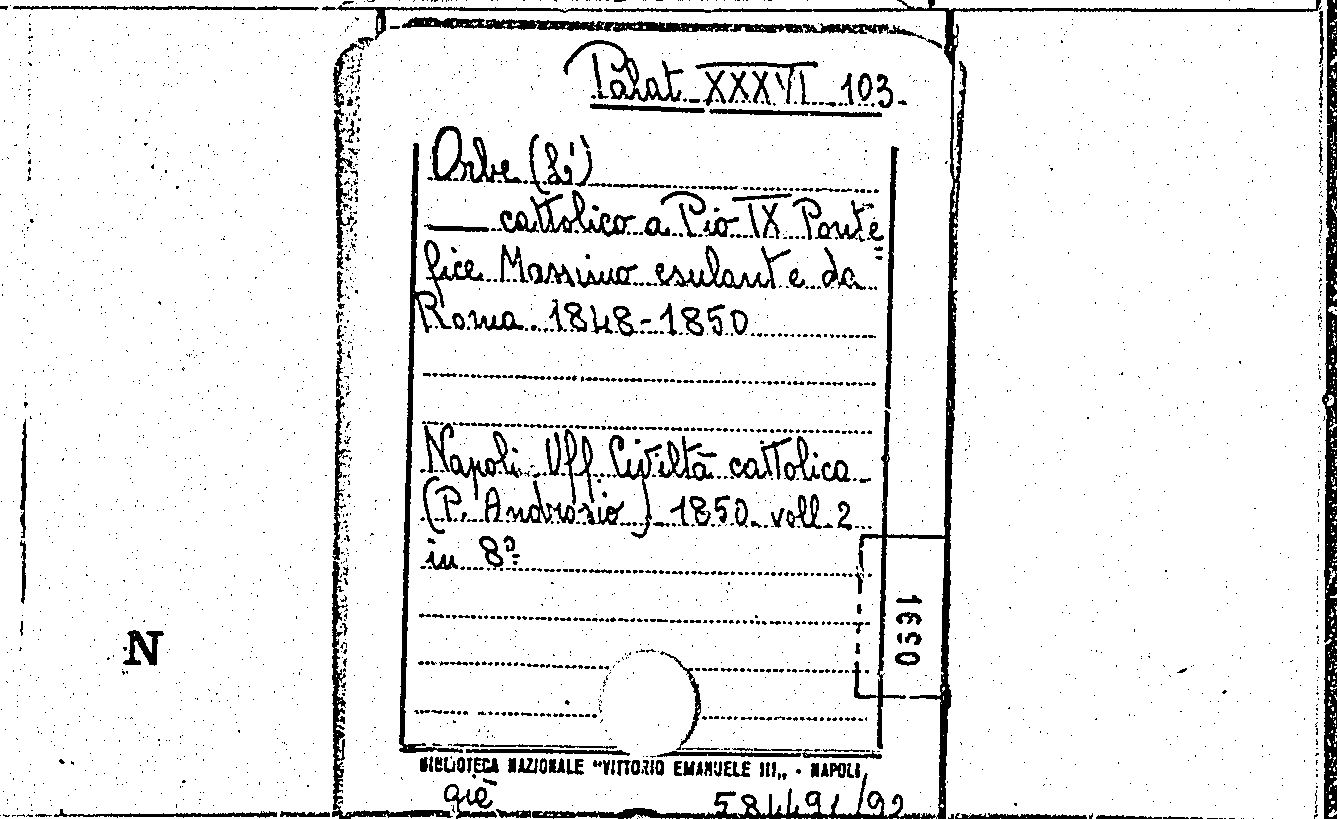 Palat XXXVI 103.
Orbe (L')
—— cattolico a Pio IX Ponte=
fice Massimo esulante da
Roma. 1848-1850
Napoli. Uff. Civiltà cattolica
(P. Androsio) 1850. voll. 2
in 8º
1690
N
BIBLIOTECA NAZIONALE "VITTORIO EMANUELE III„ - NAPOLI
già 584491/92